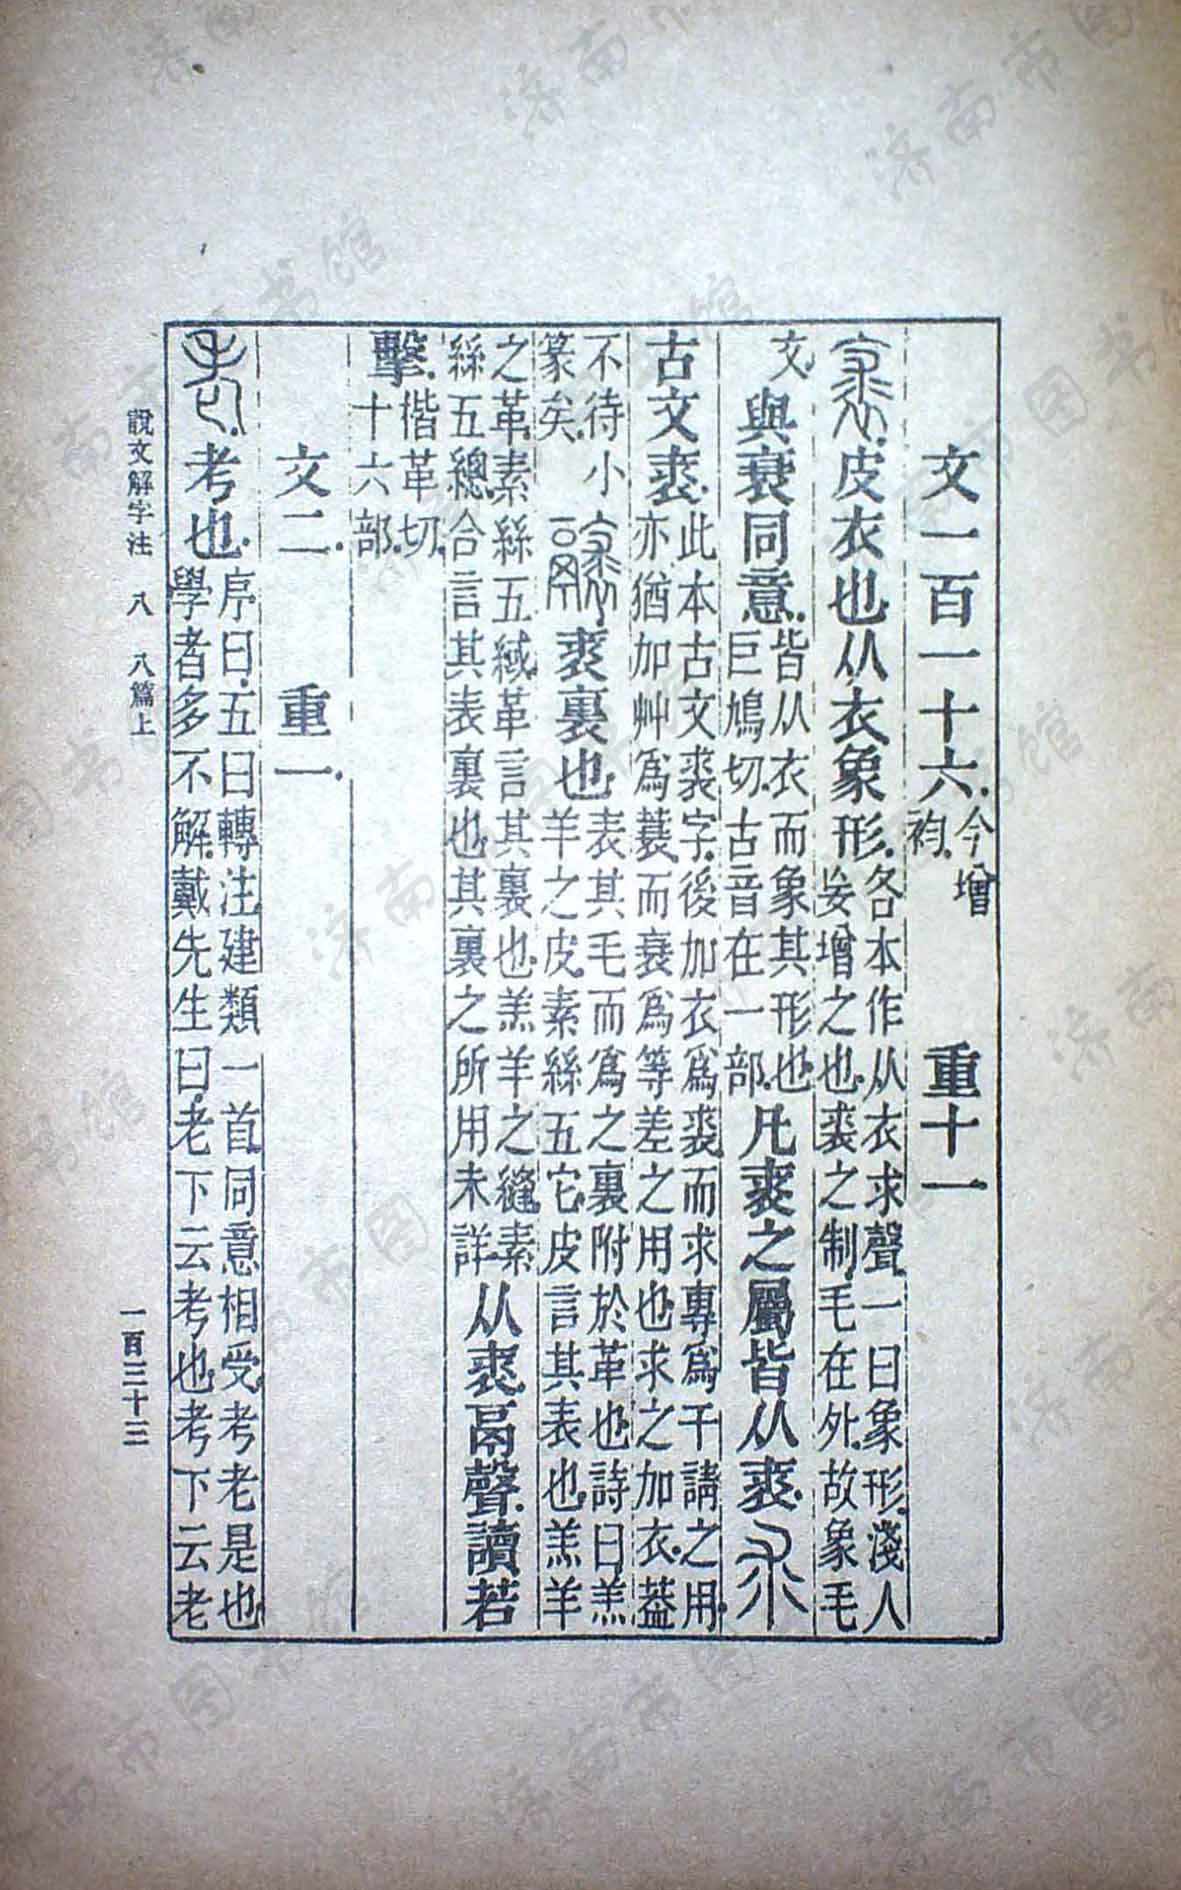 文一百一十六.今增袀.　重十一
裘.皮衣也.从衣.象形.各本作从衣求聲.一曰象形.淺人妄增之也.裘之制.毛在外.故象毛
文.與衰同意.皆从衣而象其形也.巨鳩切.古音在一部.凡裘之屬皆从裘.求
古文裘.此本古文裘字.後加衣爲裘.而求專爲干請之用.亦猶加艸爲蓑.而衰爲等差之用也.求之加衣.蓋
不待小篆矣.裘裏也.表其毛而爲之裏.附於革也.詩曰.羔羊之皮.素絲五它.皮言其表也.羔羊
之革.素絲五緎.革言其裏也.羔羊之縫.素絲五總.合言其表裏也.其裏之所用未詳.从裘.鬲聲.讀若
擊.楷革切.十六部.
文二.　重一.
老.考也.序曰.五曰轉注.建類一首.同意相受.考老是也.學者多不解.戴先生曰.老下云考也.考下云老
說文解字注　八　八篇上　一百三十三